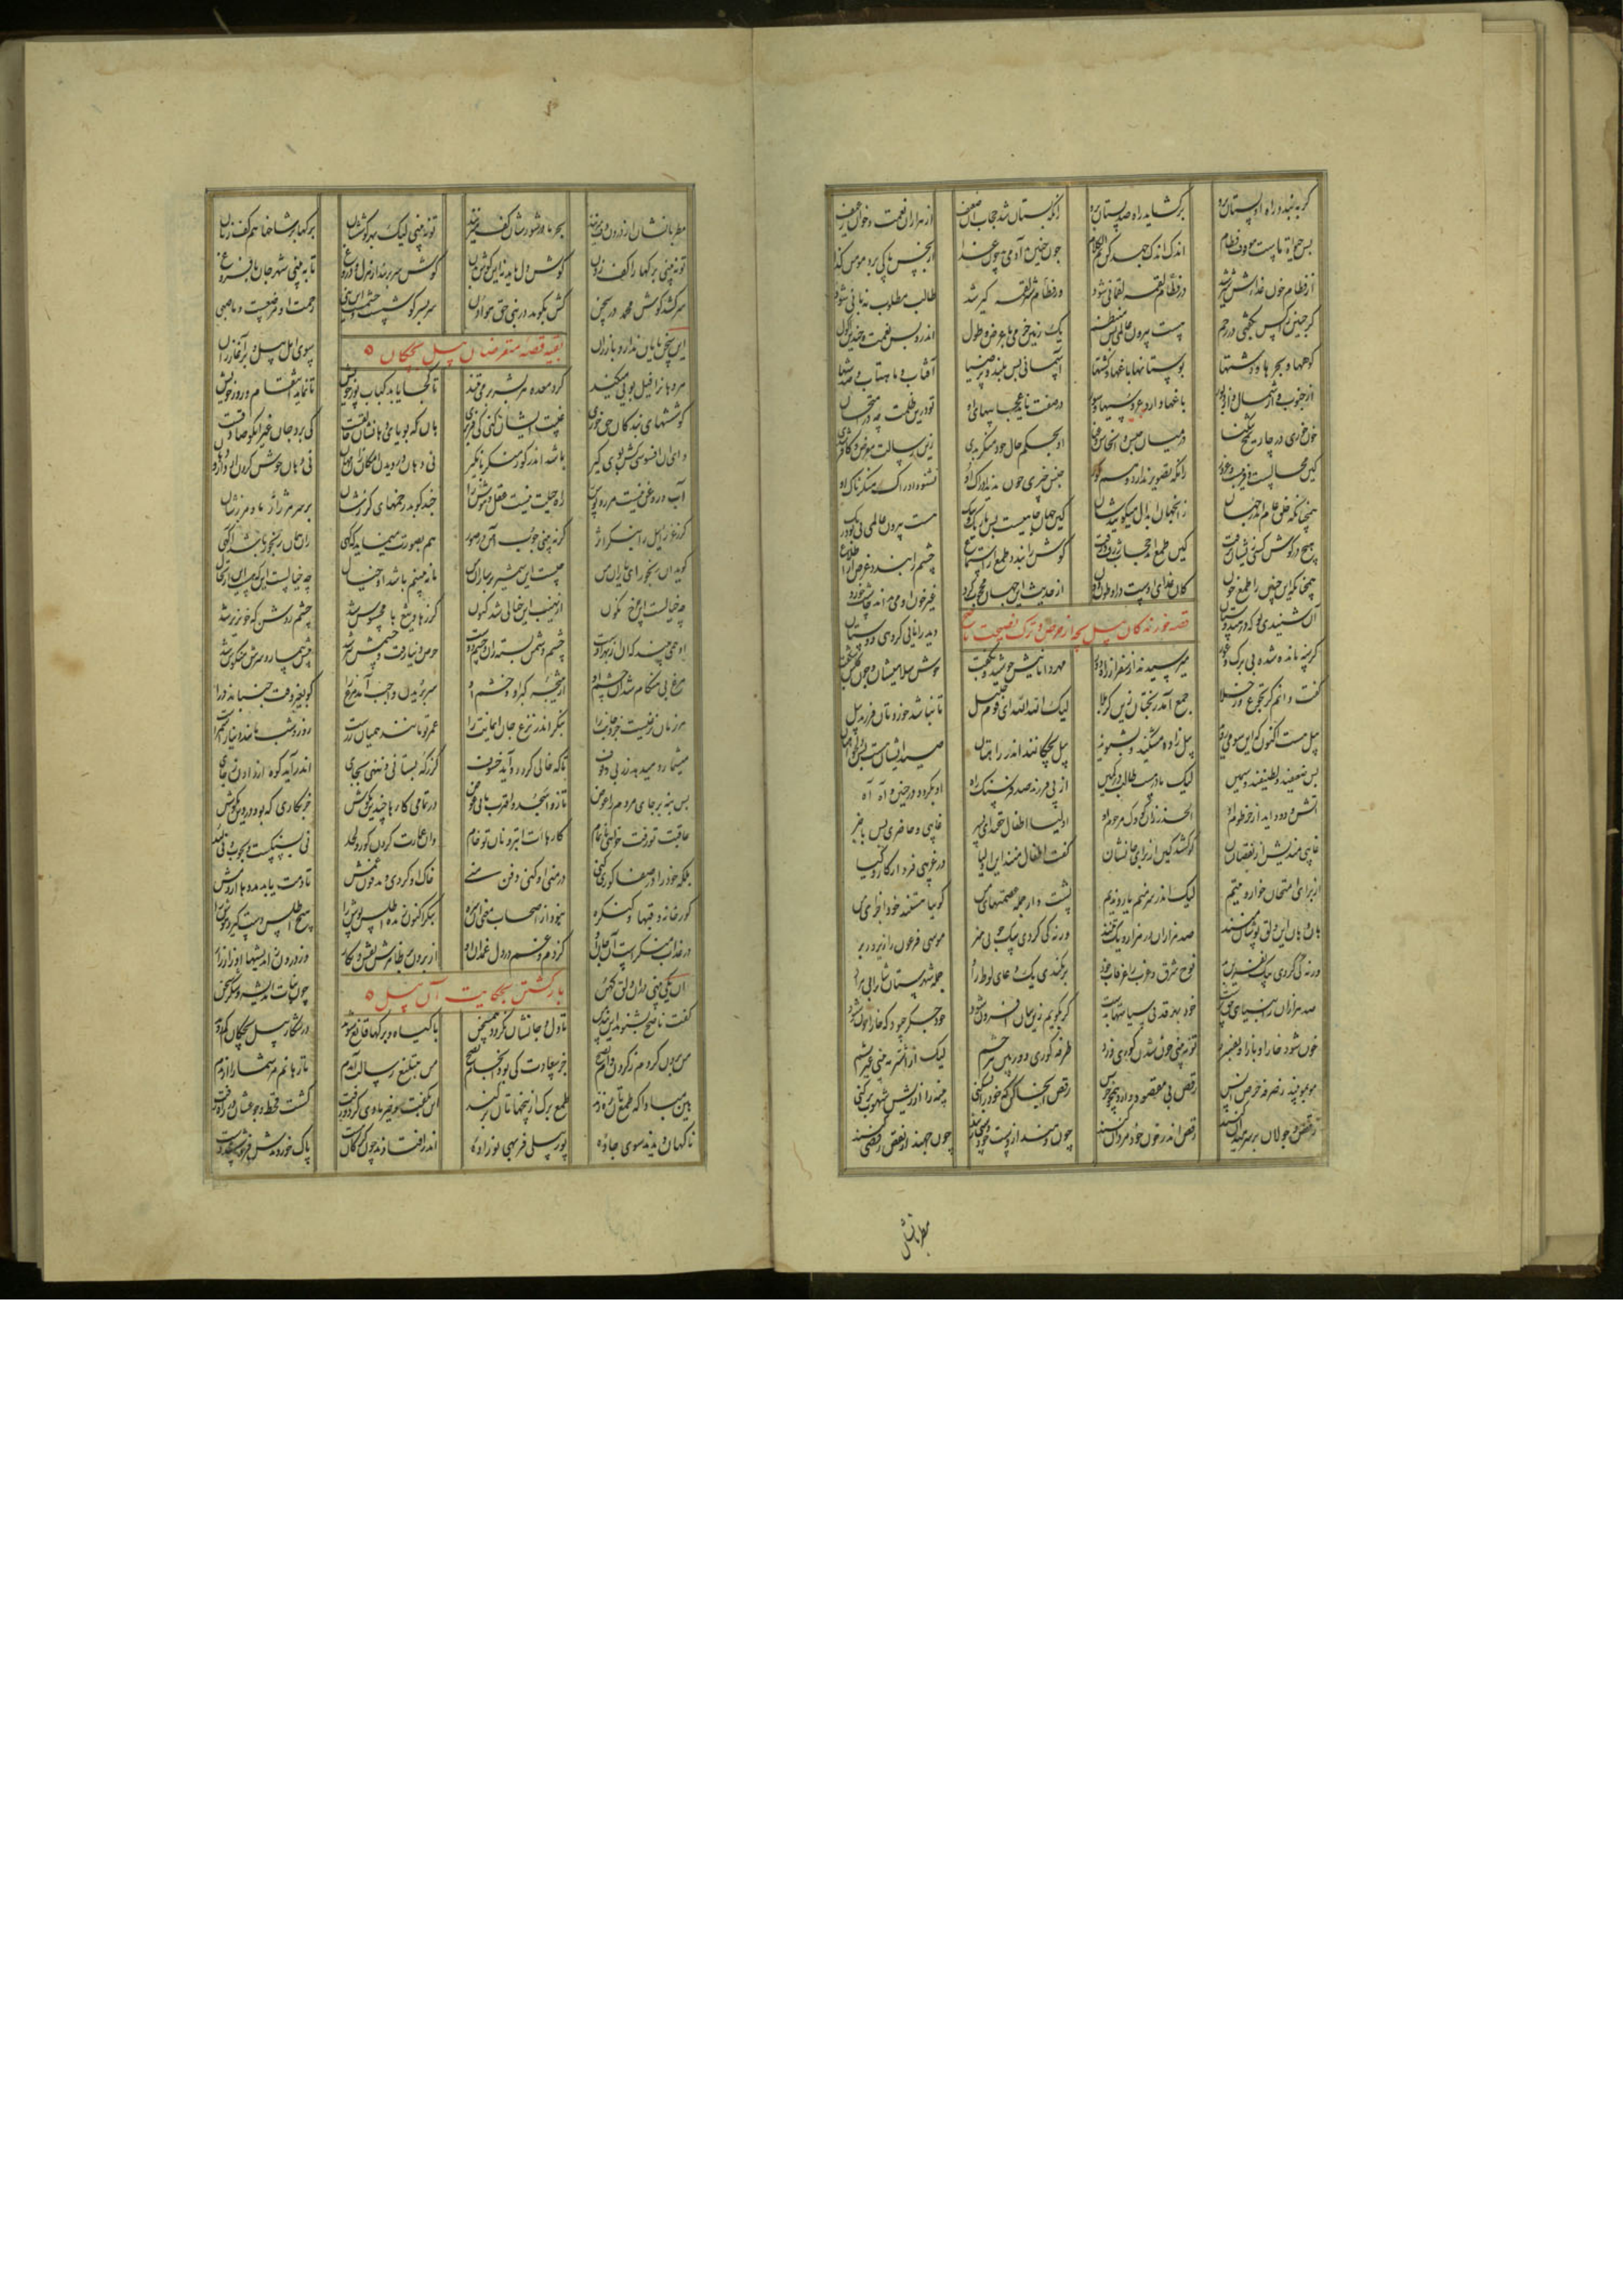 گر به بندد راه او پستان برو برکشاید راه صد پستان برو زانکه پستان شد حجاب آن ضعیف از هزاران نعمت و خوان و رغیف
پس حیوة ماست موقوف فطام اندک اندک جهد کن تم الکلام چون جنین بد آدمی خون بد غذا از نجس پاکی برد مومن کذا
از فطام خون غذااش شیر شد در فطام لقمه لقمانی شود وز فطام شیر لقمه گیر شد طالب مطلوب پنهانی شود
گر جنین را کس بگفتی در رحم هست بیرون عالمی بس منتظم یک زمین خرمی با عرض و طول اندرو بس نعمت و چندین اکول
کوهها و بحرها و دشتها بوستانها باغها و کشتها آسمانی بس بلند و پر ضیا آفتاب و ماهتاب و صد سها
از جنوب و از شمال و از دبور باغها دارد عروسیها و سور در صفت ناید عجایبهای آن تو درین ظلمت چه در امتحان
خون خوری در چار میخ تنگنا در میان حبس و انجاس و عنا او بحکم حال خود منکر بدی زین رسالت معرض و کافر شدی
کین محالست و فریبست و غرور زانکه تصویر ندارد وهم کور جنس چیزی چون ندید ادراک او نشنود ادراک منکرناک او
همچنانکه خلق عام اندر جهان زانجهان ابدال میگویدشان کین جهان چاهیست بس تاریک و تنگ هست بیرون عالمی بی بو و رنگ
هیچ در گوش کسی زیشان نرفت کین طمع آمد حجاب ژرف و زفت گوش را بندد طمع از استماع چشم را بندد غرض از اطلاع
همچنانکه این جنین را طمع خون کان غذای اوست در اوطان دون از حدیث این جهان محجوب کرد غیر خون او می نداند چاشت خورد
قصه خورندگان پیل بچه از حرص و ترک نصیحت ناصح
آن شنیدی تو که در هندوستان دید دانایی گروهی دوستان
گرسنه مانده شده بی برگ و عور میرسیدند از سفر از راه دور مهر داناییش جوشید و بگفت خوش سلامیشان و چون گلبن شکفت
گفت دانم کز تجوع وز خلا جمع آمد رنجتان زین کربلا لیک الله الله ای قوم جلیل تا نباشد خوردتان فرزند پیل
پیل هست اکنون که این سو میروید پیل زاده مشکنید و بشنوید پیل بچگانند اندر راهتان صید ایشان هست بس دلخواهتان
بس ضعیفند و لطیفند و سمین لیک مادر هست طالب در کمین از پی فرزند صد فرسنگ راه او بگردد در حنین و آه آه
آتش و دود آید از خرطوم او الحذر زان کودک مرحوم او اولیا اطفال حقند ای پسر غایبی و حاضری بس با خبر
غایبی مندیش از نقصانشان کو کشد کین از برای جانشان گفت اطفال منند این اولیا در غریبی فرد از کار و کیا
از برای امتحان خوار و یتیم لیک اندر سر منم یار و ندیم پشت دار جمله عصمتهای من گوییا هستند خود اجزای من
هان و هان این دلق پوشان منند صد هزاران در هزار و یک تنند ورنه کی کردی بیک چوبی هنر موسی فرعون را زیر و زبر
ورنه کی کردی بیک نفرین بد نوح شرق و غرب را غرقاب خود برنکندی یک دعای لوط راد جمله شهرستان شان را بی مراد
صد هزاران ز انبیای حق پرست خود بهر قرنی سیاستها بدست گر بگویم زین بیان افزون شود خود جگر چبود که خارا خون شود
خون شود خارا و باز او بفسرد تو نبینی خون شدن کوری و رد طرفه کوری دوربین تیز چشم لیک از اشتر نبینی غیر پشم
مو بمو بیند ز صرفه حرص انس رقص بی مقصود دارد همچو خرس رقص آنجا کن که خود را بشکنی پنبه را از ریش شهوت برکنی
رقص و جولان بر سر میدان کنند رقص اندر خون خود مردان کنند چون رهند از دست خود دستی زنند چون جهند از نقص خود رقصی کنند
مطربانشان
مطربانشان از درون دف میزنند بحرها در شورشان کف میزنند تو نه بینی لیک بهر گوششان برگها بر شاخها هم کف زنان
تو نه بینی برگها را کف زدن گوش دل باید نه این گوش بدن گوش سر بربند از هزل و دروغ تا به بینی شهر جان با فروغ
سر کشد گوش محمد در سخن کش بگوید در نبی حق هو اذن سر بسر گوشست و چشمست این نبی رحمت او مرضعست و ما صبی
این سخن پایان ندارد باز ران سوی اهل پیل و بر آغاز ران
بقیه قصه متعرضان پیل بچگان
هر دهانرا پیل بویی میکند گرد معده هر بشر بر می تند تا کجا یابد کباب پور خویش تا نماید انتقام و زور خویش
گوشتهای بندگان حق خوری غیبت ایشان کنی کیفر بری هان که بویای دهانشان خالقست کی برد جان غیر آنکو صادقست
وای آن افسوسی کش بوی گیر باشد اندر گور منکر یا نکیر نی دهان دزدیدن امکان زان مهان نی دهان خوش کردن از دارودهان
آب و روغن نیست مر روپوش را راه حیلت نیست عقل و هوش را چند کوبد زخمهای گرزشان بر سر هر ژاژخا و مرزشان
گرز عزراییل را بنگر اثر گر نه بینی چوب و آهن در صور هم بصورت مینماید گه گهی زان همان رنجور باشد آگهی
گوید آن رنجور ای یاران من چیست این شمشیر بر ساران من ما نمی بینیم باشد این خیال چه خیالست این که هست این ارتحال
چه خیالست این که این چرخ نگون از نهیب این خیالی شد کنون گرزها و تیغ ها محسوس شد چشم روشن که خونریز شد
او همی بیند که آن از بهر اوست چشم دشمن بسته زان و چشم دوست حرص دنیا رفت و چشمش تیز شد پیش بیمار و سرش منکوس شد
مرغ بی هنگام شد آن چشم او از نتیجه کبر او و خشم او سر بریدن واجب آمد مرغ را کو بغیر وقت جنباند درا
هر زمان نزعیست جزو جانت را بنگر اندر نزع جان ایمانت را عمر تو مانند همیان زرست روز و شب مانند دینار اشمرست
میشمارد میدهد زر بی وقوف تا که خالی گردد و آید خسوف گر ز که بستانی و ننهی بجای اندر آید کوه از دادن ز پای
پس بنه بر جای هر دم را عوض تا ز واسجد واقترب یابی غرض در تمامی کارها چندین مکوش جز بکاری که بود در دین مکوش
عاقبت تو رفت خواهی ناتمام کارهات ابتر و نان تو خام وان عمارت کردن گور و لحد نی بسنگست و بچوب و نی لبد
بلکه خود را در صفا گوری کنی در منی او کنی دفن منی خاک او گردی و مدفون غمش تا دمت یابد مددها از دمش
گورخانه و قبها و کنگره نبود از اصحاب معنی آن سره بنگر اکنون زنده اطلس پوش را هیچ اطلس دست گیرد هوش را
در عذاب منکرست آن جان او گزدم غم در دل غمدان او از برون بر ظاهرش نقش و نگار وز درون ز اندیشها او زار زار
آن یکی بینی در آن دلق کهن چون نبات اندیشه و شکر سخن
بازگشتن بحکایت آن پیل
گفت ناصح بشنوید این پند من تا دل و جانتان نگردد ممتحن با گیاه و برگها قانع شوید در شکار پیل بچگان کم روید
من برون کردم ز گردن وام نصح جز سعادت کی بود انجام نصح من بتبلیغ رسالت آمدم تا رهانم مر شما را از ندم
هین مبادا که طمع تان ره زند طمع برگ از بیخهاتان برکند این بگفت و خیربادی کرد و رفت گشت قحط و جوعشان در راه زفت
ناگهان دیدند سوی جاده پور پیلی فربهی نوزاده اندر افتادند چون گرگان مست پاک خوردندش فرو شستند دست